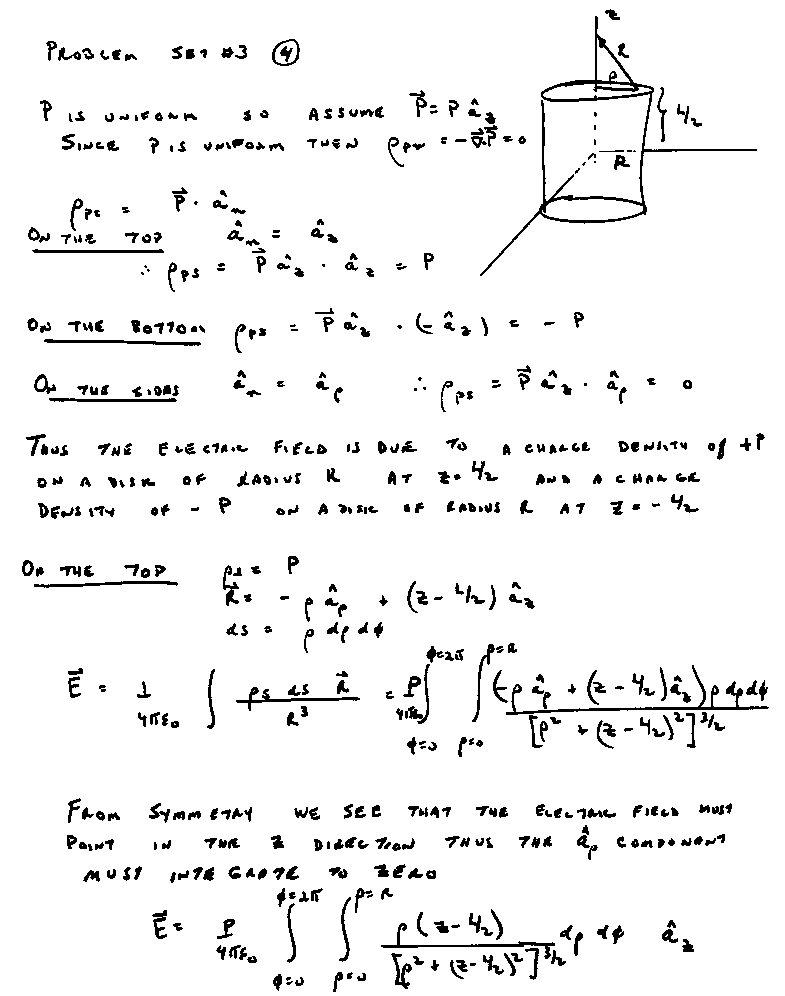 PROBLEM SET #3 ④
z
R
ρ
L/2
R
P IS UNIFORM SO ASSUME P⃗ = P â_z
SINCE P IS UNIFORM THEN ρ_pv = -∇⃗·P⃗ = 0
ρ_ps = P⃗ · â_n
ON THE TOP â_n = â_z
∴ ρ_ps = P⃗ â_z · â_z = P
ON THE BOTTOM ρ_ps = P⃗ â_z · (-â_z) = - P
ON THE SIDES â_n = â_ρ ∴ ρ_ps = P⃗ â_z · â_ρ = 0
THUS THE ELECTRIC FIELD IS DUE TO A CHARGE DENSITY of +P
ON A DISK OF RADIUS R AT z = L/2 AND A CHARGE
DENSITY OF - P ON A DISK OF RADIUS R AT Z = - L/2
ON THE TOP ρ_s = P
R⃗ = - ρ â_ρ + (z - L/2) â_z
ds = ρ dρ dφ
E⃗ = 1/(4πε₀) ∫ ρs ds R⃗ / R³ = P/(4πε₀) ∫_{φ=0}^{φ=2π} ∫_{ρ=0}^{ρ=R} (-ρ â_ρ + (z - L/2) â_z) ρ dρ dφ / [ρ² + (z - L/2)²]^{3/2}
FROM SYMMETRY WE SEE THAT THE ELECTRIC FIELD MUST
POINT IN THE Z DIRECTION THUS THE â_ρ COMPONENT
MUST INTEGRATE TO ZERO
E⃗ = P/(4πε₀) ∫_{φ=0}^{φ=2π} ∫_{ρ=0}^{ρ=R} ρ (z - L/2) / [ρ² + (z - L/2)²]^{3/2} dρ dφ â_z